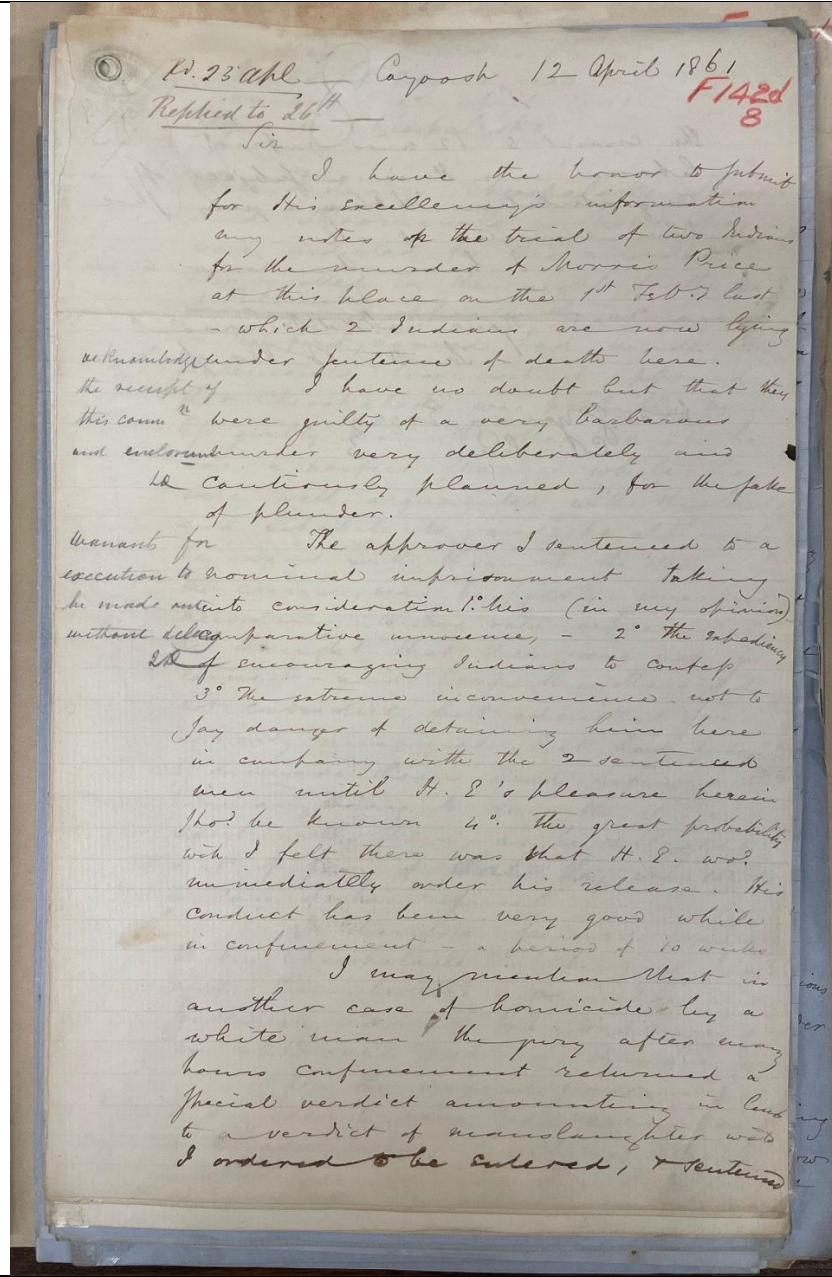 Rd. 23 apl — Cayoosh 12 April 1861
F142d
8
Replied to 26th —
Sir
I have the honor to submit
for His Excellency's information
my notes of the trial of two Indians
for the murder of Morris Price
at this place on the 1st Feby last
- which 2 Indians are now lying
under sentence of death here.
I have no doubt but that they
were guilty of a very barbarous
murder very deliberately and
cautiously planned, for the sake
of plunder.
acknowledge
the receipt of
this commn
and enclosure
The approver I sentenced to a
nominal imprisonment taking
into consideration 1° his (in my opinion)
comparative innocence, - 2° the expediency
of encouraging Indians to confess
warrants for
execution to
be made out
without delay
3° The extreme inconvenience not to
say danger of detaining him here
in company with the 2 sentenced
men until H. E's pleasure herein
shod be known 4°. The great probability
wch I felt there was that H. E. wod
immediately order his release. His
conduct has been very good while
in confinement - a period of 10 weeks
I may mention that in
another case of homicide by a
white man the jury after many
hours confinement returned a
special verdict amounting in law
to a verdict of manslaughter wch
I ordered to be entered, & sentenced